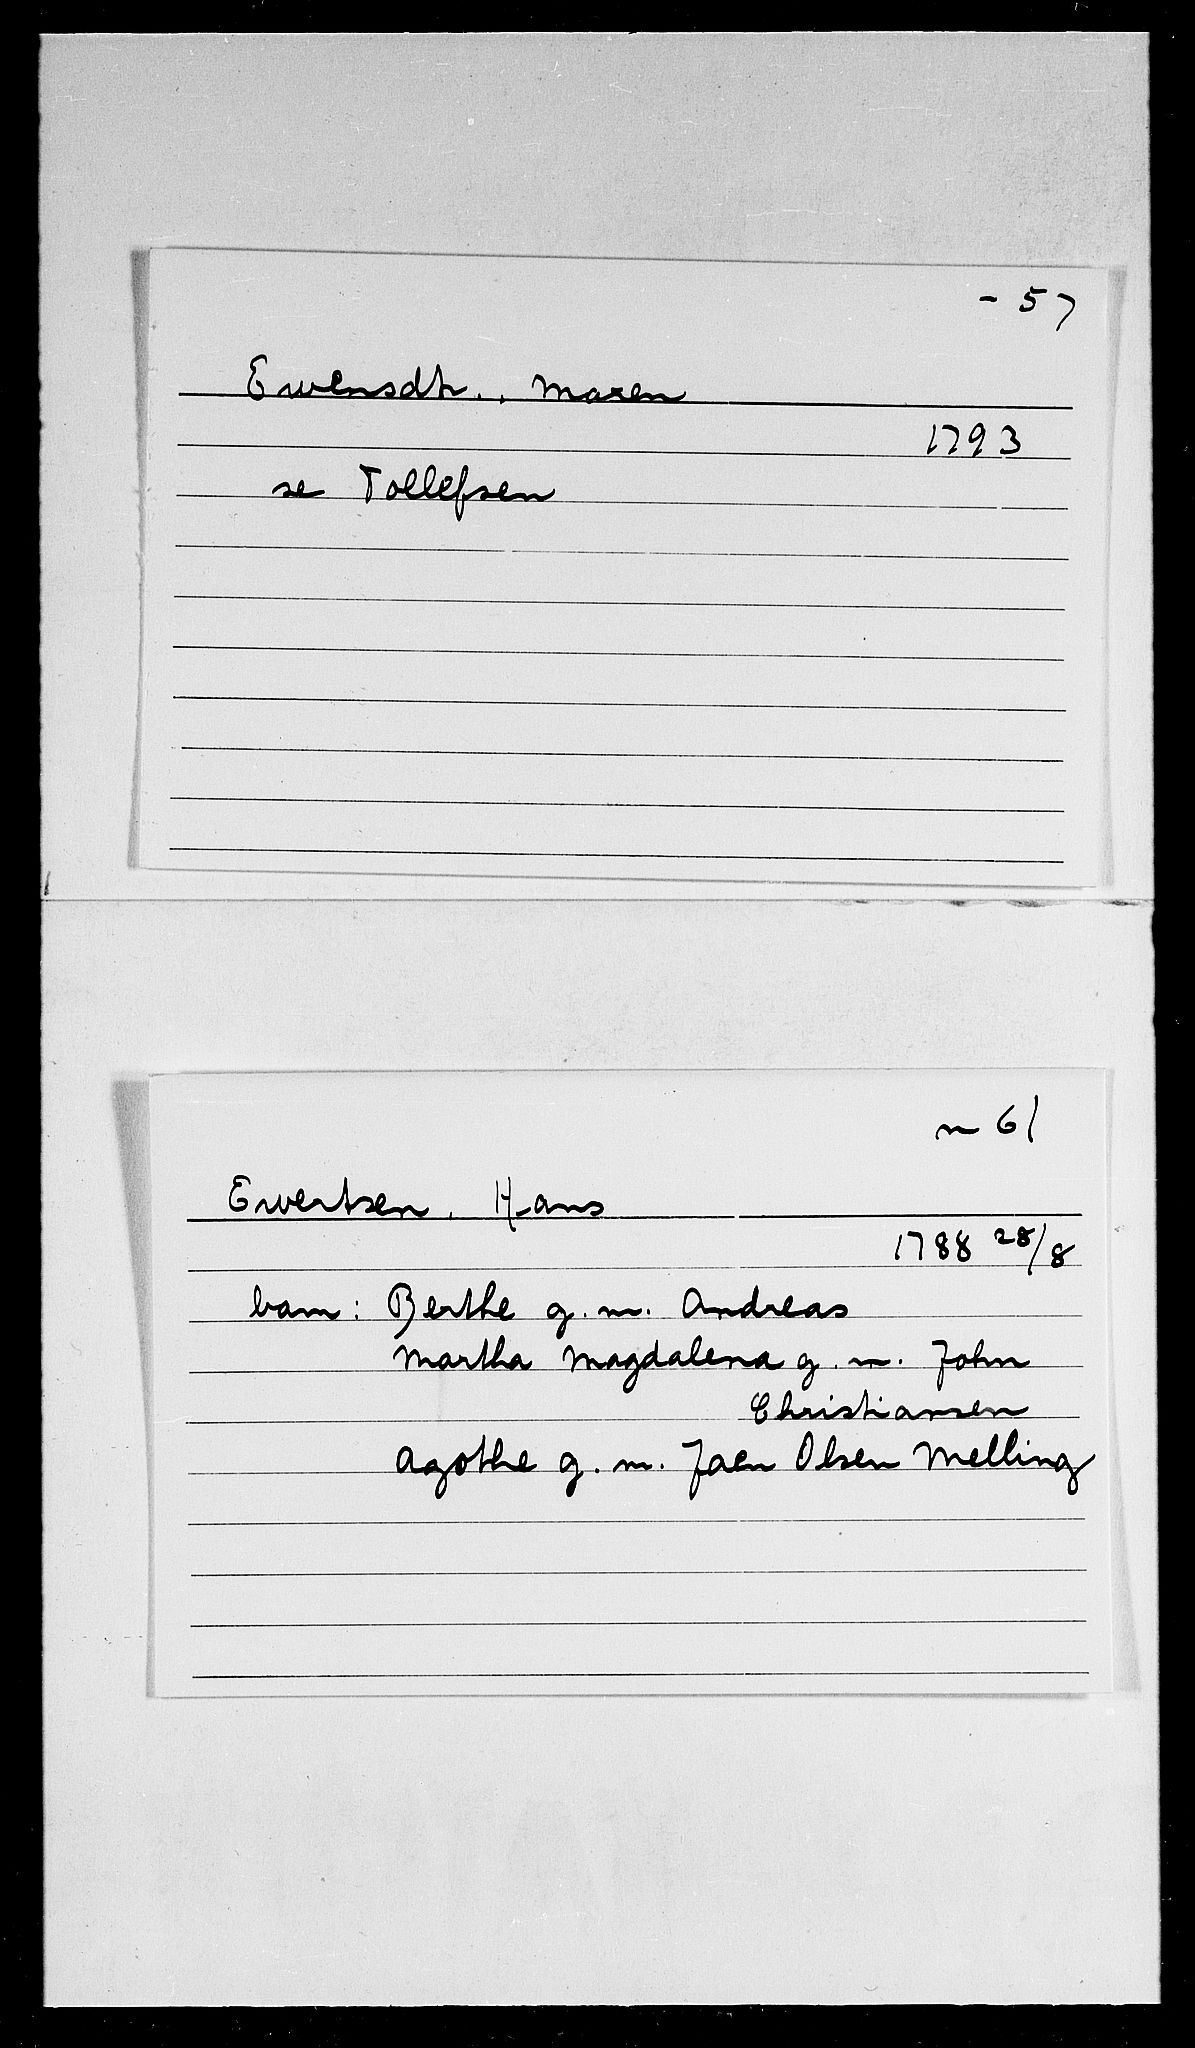 - 57
Ewensdtr., Maren
1793
se Tollefsen
n 61
Ewertsen, Hans
1788 28/8
barn: Berthe g.m. Andreas
Martha Magdalena g.m. John
Christiansen
Agothe g.m. Jaen Olsen Melling